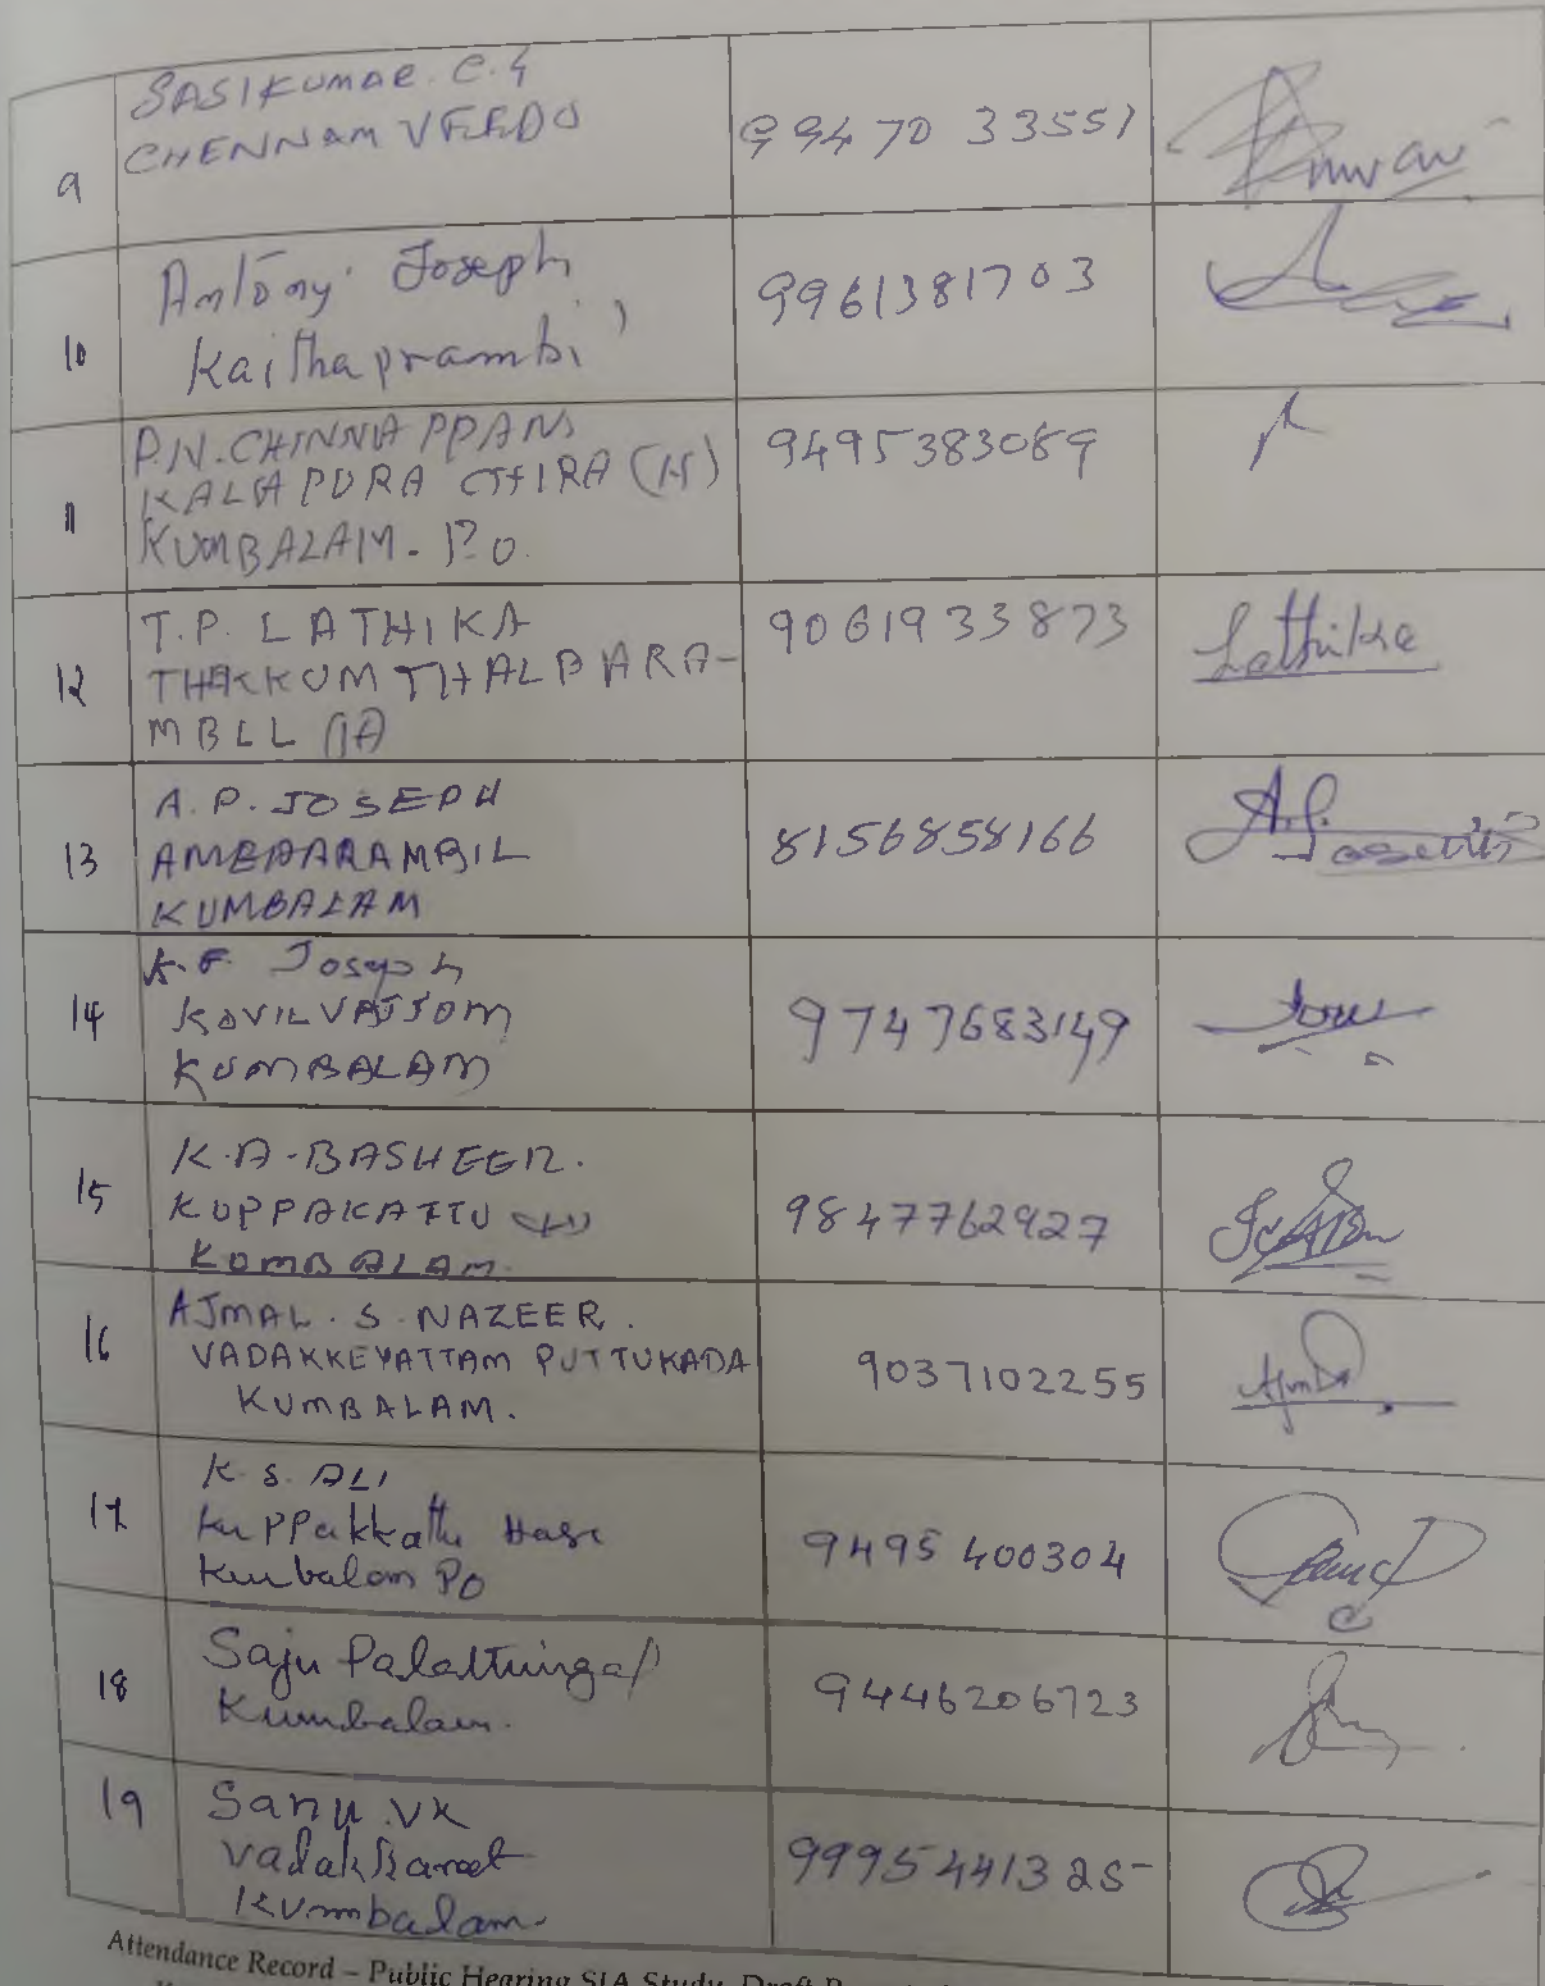 9
SASIKUMAR. C. G
CHENNAM VEEDU
99470 33551
10
Antony Joseph
Kaithaprambi
9961381703
11
P.N. CHINNAPPAN,
KALAPURA CHIRA (H)
KUMBALAM. P.O.
9495383089
12
T.P. LATHIKA
THEKKUM THALPARA-
MBLL (H)
9061933873
Lathika
13
A. P. JOSEPH
AMEPARAMBIL
KUMBALAM
8156858166
A.P. Joseph
14
K.F. Joseph
KOVILVATTOM
KUMBALAM
9747683149
15
K.A-BASHEER.
KUPPAKATTU (H)
KUMBALAM.
9847762927
16
AJMAL. S. NAZEER.
VADAKKEYATTAM PUTTUKADA
KUMBALAM.
9037102255
Ajmal
17
K. S. ALI
Kuppakkattu House
Kumbalam PO
9495 400304
18
Saju Palattuingal
Kumbalam.
9446206723
19
Sanu. VK
Vadakkanet
Kumbalam.
9995441325
Attendance Record – Public Hearing SIA Study, Draft